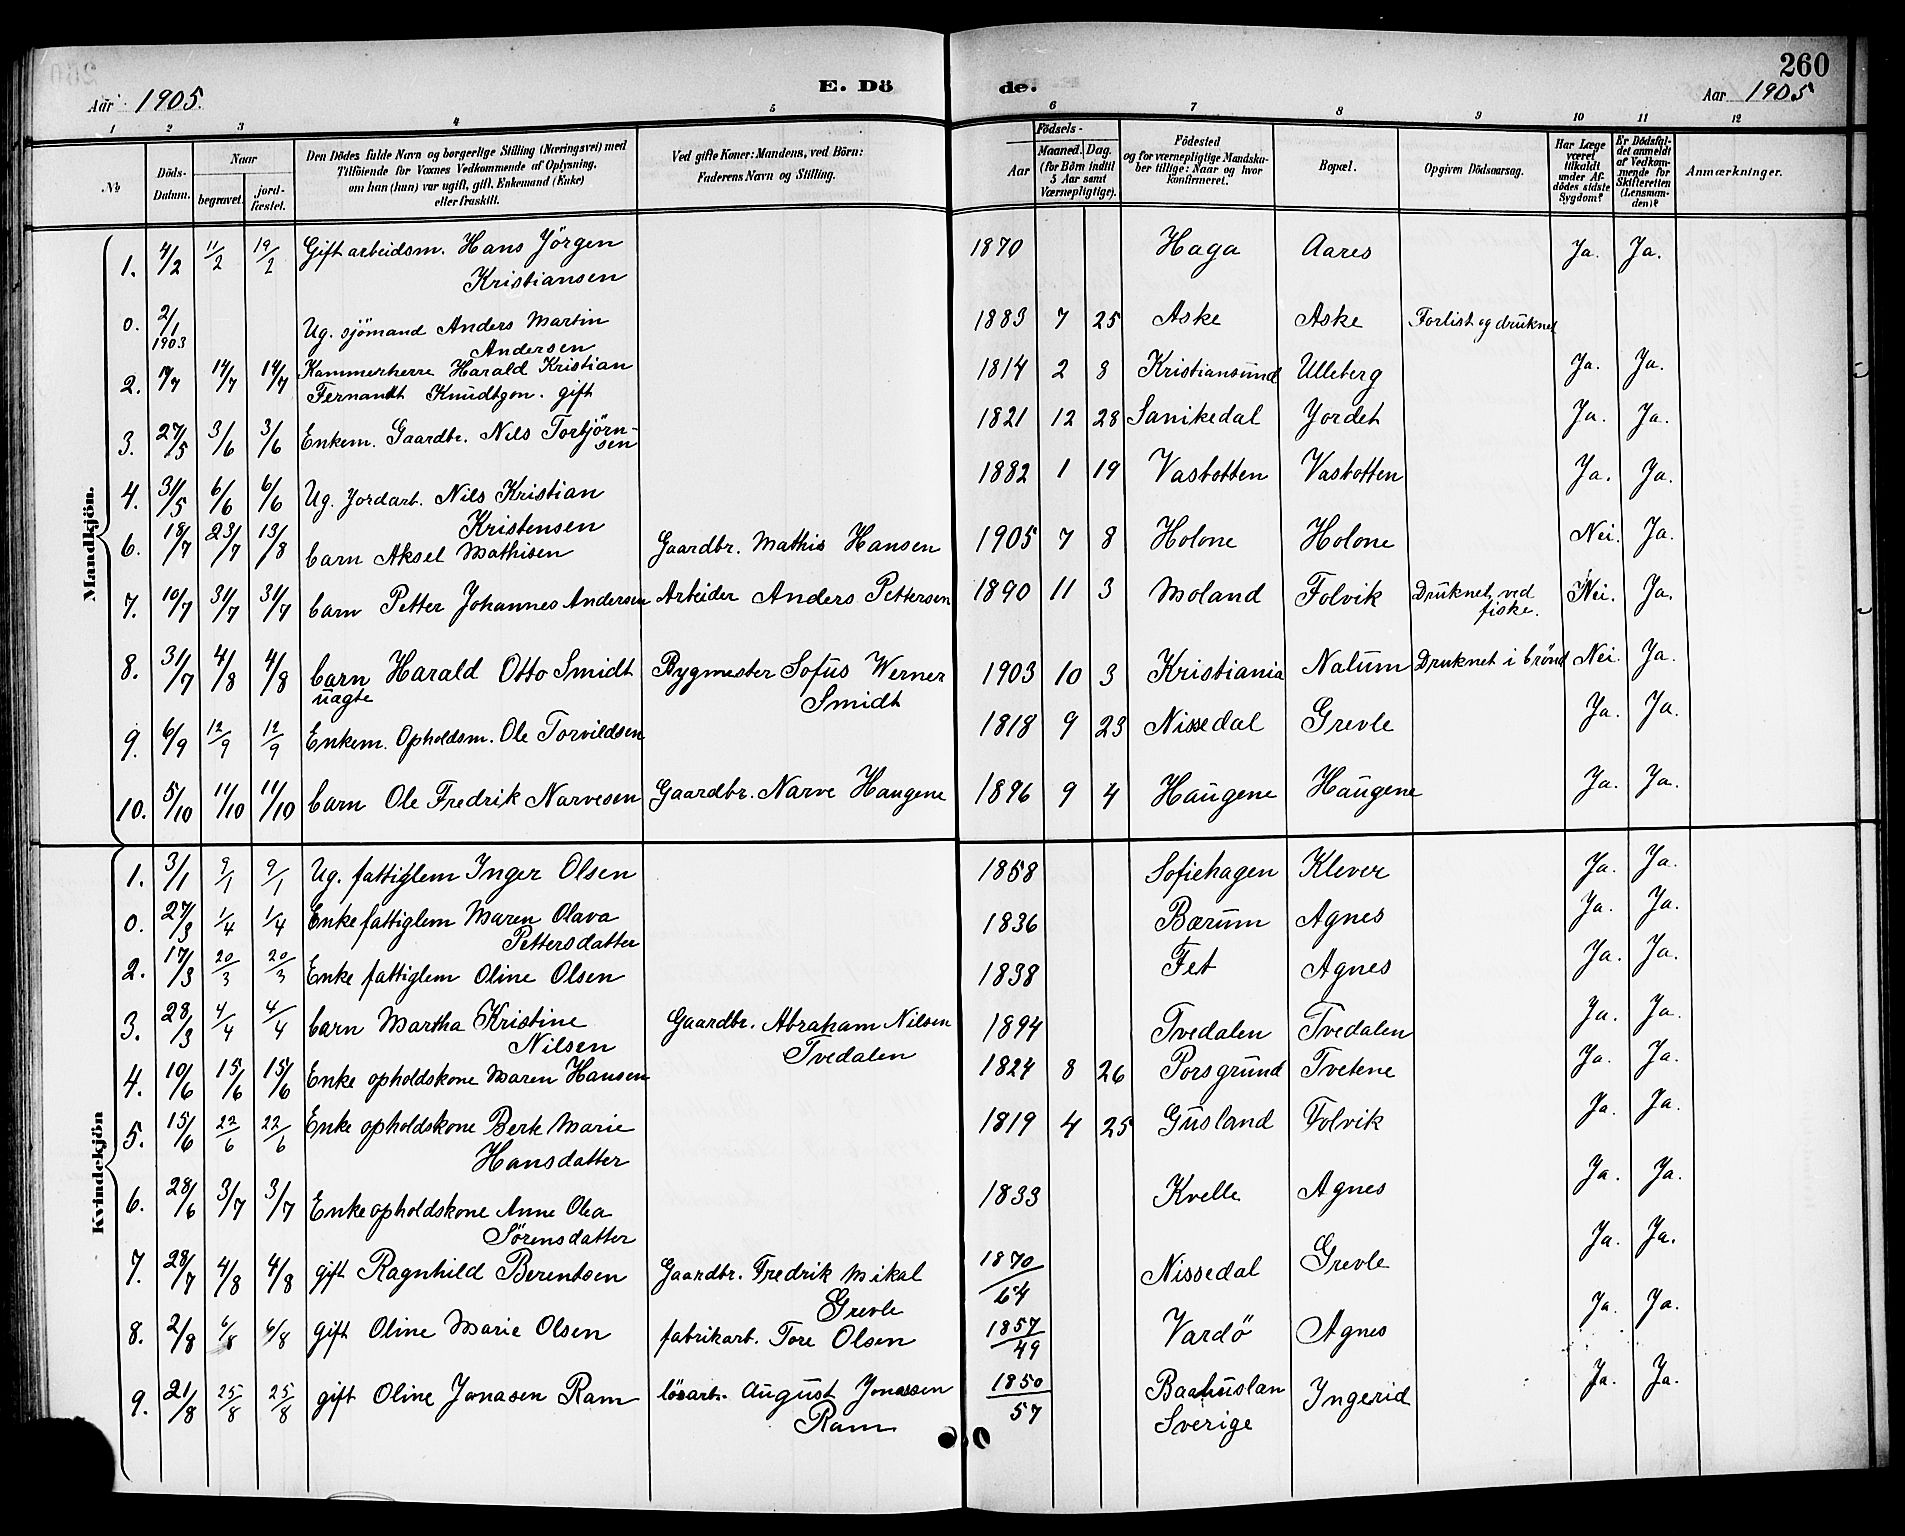 260
Aar 1905. E. Dö de. Aar 1905
1 2 3 4 5 6 7 8 9 10 11 12
No
Döds-Datum.
Naar
begravet.
jordfæstet.
Den Dödes fulde Navn og borgerlige Stilling (Næringsvei) med
Tilföiende for Voxnes Vedkommende af Oplysning,
om han (hun) var ugift, gift, Enkemand (Enke)
eller fraskilt.
Ved gifte Koner: Mandens, ved Börn:
Faderens Navn og Stilling.
Födsels-
Aar
Maaned. Dag.
(for Börn indtil
5 Aar samt
Værnepligtige).
Födested
og for værnepligtige Mandsku-
ber tillige: Naar og hvor
konfirmeret.
Bopæl.
Opgiven Dödsaarsag.
Har Læge
været
tilkaldt
under Af-
dödes sidste
Sygdom?
Er Dödsfal-
det anmeldt
af Vedkom-
mende for
Skifteretten
(Lensman-
den)?
Anmærkninger.
Mandkjön.
1. 4/2 11/2 19/2 Gift arbeidsm. Hans Jörgen 1870 Haga Aares Ja. Ja.
Kristiansen
0. 2/1 1903 Ug. sjömand Anders Martin 1883 7 25 Aske Aske Forlist og druknet
Andersen
2. 14/7 14/7 Kammerherre Harald Kristian 1814 2 8 Kristiansund Ulleberg Ja. Ja.
Fernandt Knudtzon. gift
3. 27/5 3/6 3/6 Enkem. Gaardbr. Nils Torbjørn- 1821 12 28 Sanikedal Jordet Ja. Ja.
sen
4. 31/5 6/6 6/6 Ug. Jordarb. Nils Kristian 1882 1 19 Vasbotten Vasbotten Ja. Ja.
Kristensen
6. 18/7 23/7 13/8 barn Aksel Mathisen Gaardbr. Mathis Hansen 1905 7 8 Holone Holone Nei. Ja.
7. 10/7 31/7 31/7 barn Petter Johannes Andersen Arbeider Anders Pettersen 1890 11 3 Moland Folvik Druknet ved Nei. Ja.
fiske.
8. 31/7 4/8 4/8 barn Harald Otto Smidt Bygmester Sofus Werner 1903 10 3 Kristiania Nalum Druknet i brönd Nei. Ja.
uagte Smidt
9. 6/9 12/9 12/9 Enkem. Opholdsm. Ole Torvildsen 1818 9 23 Nissedal Grevle Ja. Ja.
10. 5/10 11/10 11/10 barn Ole Fredrik Narvesen Gaardbr. Narve Haugene 1896 9 4 Haugene Haugene Ja. Ja.
Kvindekjön
1. 3/1 9/1 9/1 Ug. fattiglem Inger Olsen 1858 Sofiehagen Klever Ja. Ja.
0. 27/3 1/4 1/4 Enke fattiglem Maren Olava 1836 Bærum Agnes Ja. Ja.
Pettersdatter
2. 17/3 20/3 20/3 Enke fattiglem Oline Olsen 1838 Fet Agnes Ja. Ja.
3. 28/3 4/4 4/4 barn Martha Kristine Gaardbr. Abraham Nilsen 1894 Tvedalen Tvedalen Ja. Ja.
Nilsen Tvedalen
4. 10/6 15/6 15/6 Enke opholdskone Maren Hansen 1824 8 26 Porsgrund Tvetene Ja. Ja.
5. 15/6 22/6 22/6 Enke opholdskone Berte Marie 1819 4 25 Gusland Folvik Ja. Ja.
Hansdatter
6. 28/6 3/7 3/7 Enke opholdskone Anne Olea 1833 Kvelle Agnes Ja. Ja.
Sörensdatter
7. 28/7 4/8 4/8 gift Ragnhild Berentsen Gaardbr. Fredrik Mikal 1870/64 Nissedal Grevle Ja. Ja.
Grevle
8. 2/8 6/8 6/8 gift Oline Marie Olsen fabrikarb. Tore Olsen 1857/49 Vardö Agnes Ja. Ja.
9. 21/8 25/8 25/8 gift Oline Jonasen Ram lösarb. August Jonassen 1850/57 Baahuslan Ingerid Ja. Ja.
Ram Sverige